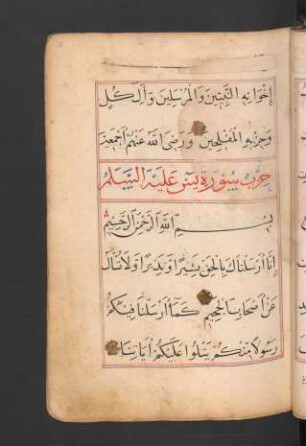 إخوانه النبيين والمرسلين وآل كل
وحزبه المفلحين ورضى الله عنهم أجمعين
حزب سورة يس عليه السلام
بسم الله الرحمن الرحيم
إنا أرسلناك بالحق بشيرا ونذيرا ولا تسأل
عن أصحاب الجحيم كما أرسلنا فيكم
رسولا منكم يتلوا عليكم آياتنا